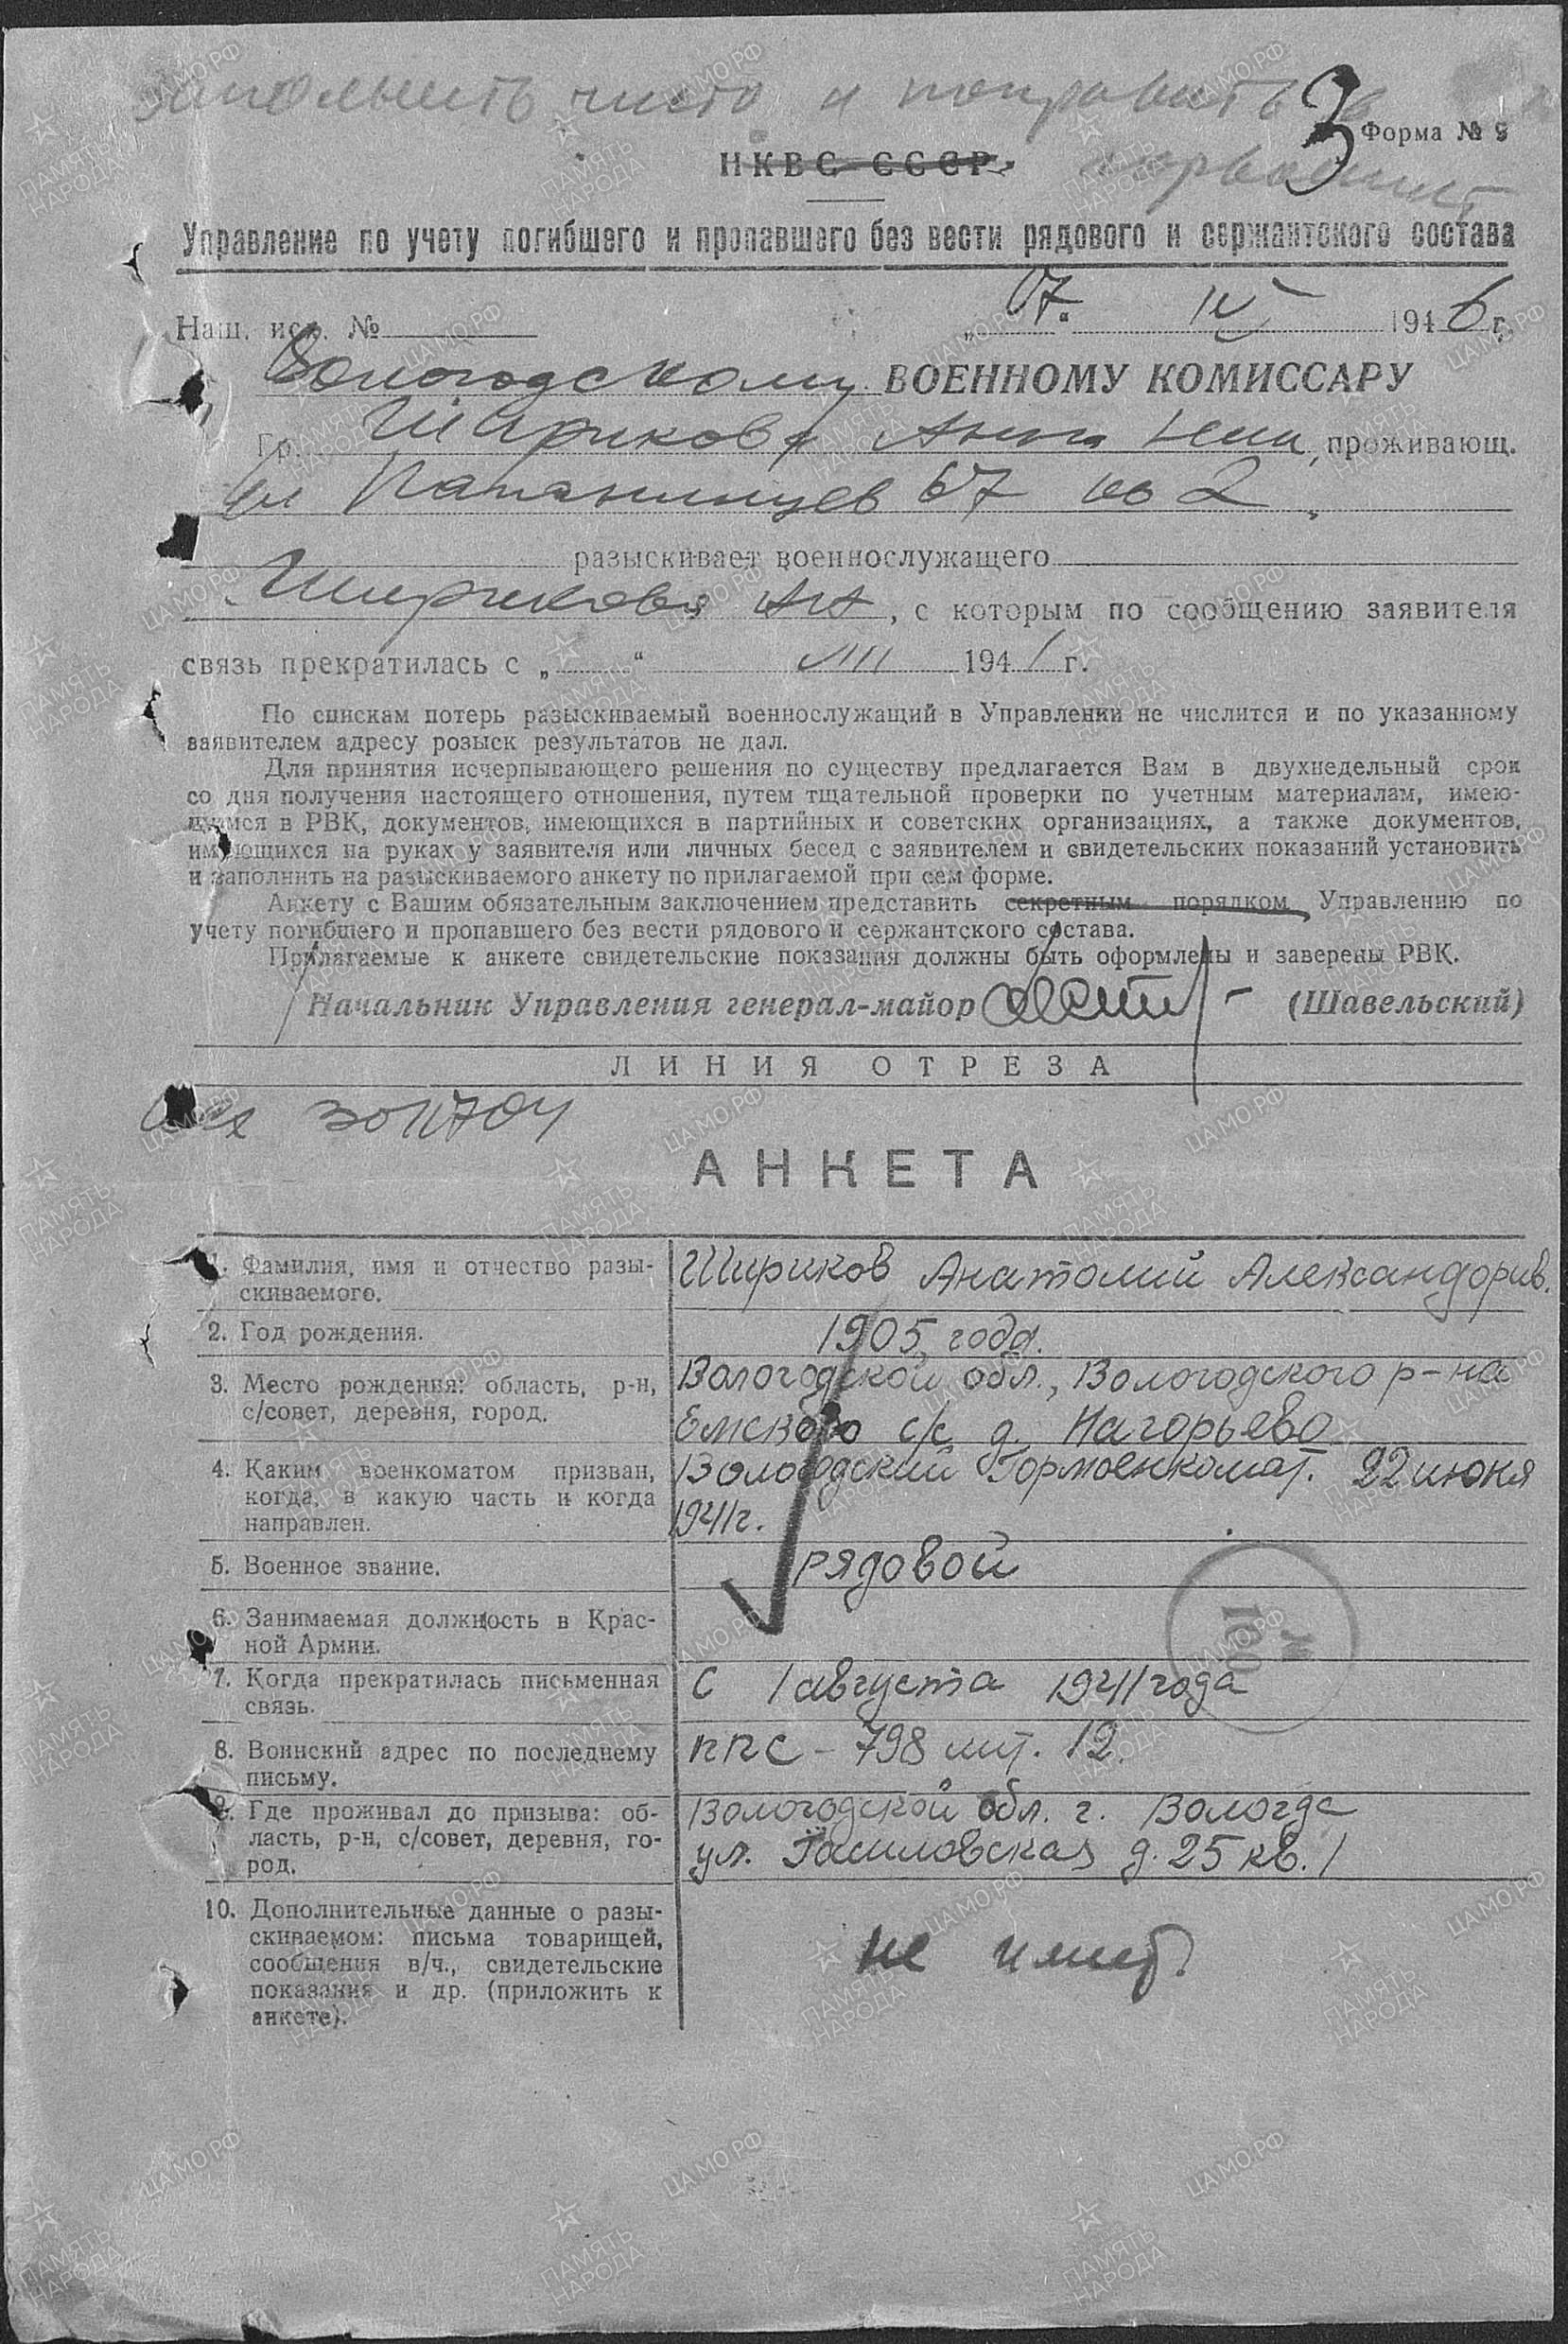 заполнить чисто и направить в
3 Форма № 9
НКВС СССР
Управление по учету погибшего и пропавшего без вести рядового и сержантского состава
Наш. исх. № „07.“ IV 1946 г.
Вологодскому ВОЕННОМУ КОМИССАРУ
Гр. Ширикова Анна, проживающ.
ул 67 кв 2
разыскивает военнослужащего
Ширикова АА, с которым по сообщению заявителя
связь прекратилась с „ “ VIII 1941 г.
По спискам потерь разыскиваемый военнослужащий в Управлении не числится и по указанному
заявителем адресу розыск результатов не дал.
Для принятия исчерпывающего решения по существу предлагается Вам в двухнедельный срок
со дня получения настоящего отношения, путем тщательной проверки по учетным материалам, имею-
щимся в РВК, документов, имеющихся в партийных и советских организациях, а также документов,
имеющихся на руках у заявителя или личных бесед с заявителем и свидетельских показаний установить
и заполнить на разыскиваемого анкету по прилагаемой при сем форме.
Анкету с Вашим обязательным заключением представить секретным порядком Управлению по
учету погибшего и пропавшего без вести рядового и сержантского состава.
Прилагаемые к анкете свидетельские показания должны быть оформлены и заверены РВК.
Начальник Управления генерал-майор (Шавельский)
ЛИНИЯ ОТРЕЗА
АНКЕТА
1. Фамилия, имя и отчество разы-
скиваемого.
Шириков Анатолий Александров.
2. Год рождения.
1905 года.
3. Место рождения: область, р-н,
с/совет, деревня, город.
Вологодской обл., Вологодского р-на
Емского с/с д. Нагорьево
4. Каким военкоматом призван,
когда, в какую часть и когда
направлен.
Вологодский Горвоенкомат. 22 июня
1941г.
5. Военное звание.
рядовой
6. Занимаемая должность в Крас-
ной Армии.
7. Когда прекратилась письменная
связь.
С 1 августа 1941 года
8. Воинский адрес по последнему
письму.
ППС - 798 лит. 12.
9. Где проживал до призыва: об-
ласть, р-н, с/совет, деревня, го-
род.
Вологодской обл. г. Вологда
ул. Гасиловская д. 25 кв. 1
10. Дополнительные данные о разы-
скиваемом: письма товарищей,
сообщения в/ч., свидетельские
показания и др. (приложить к
анкете).
не имеет.